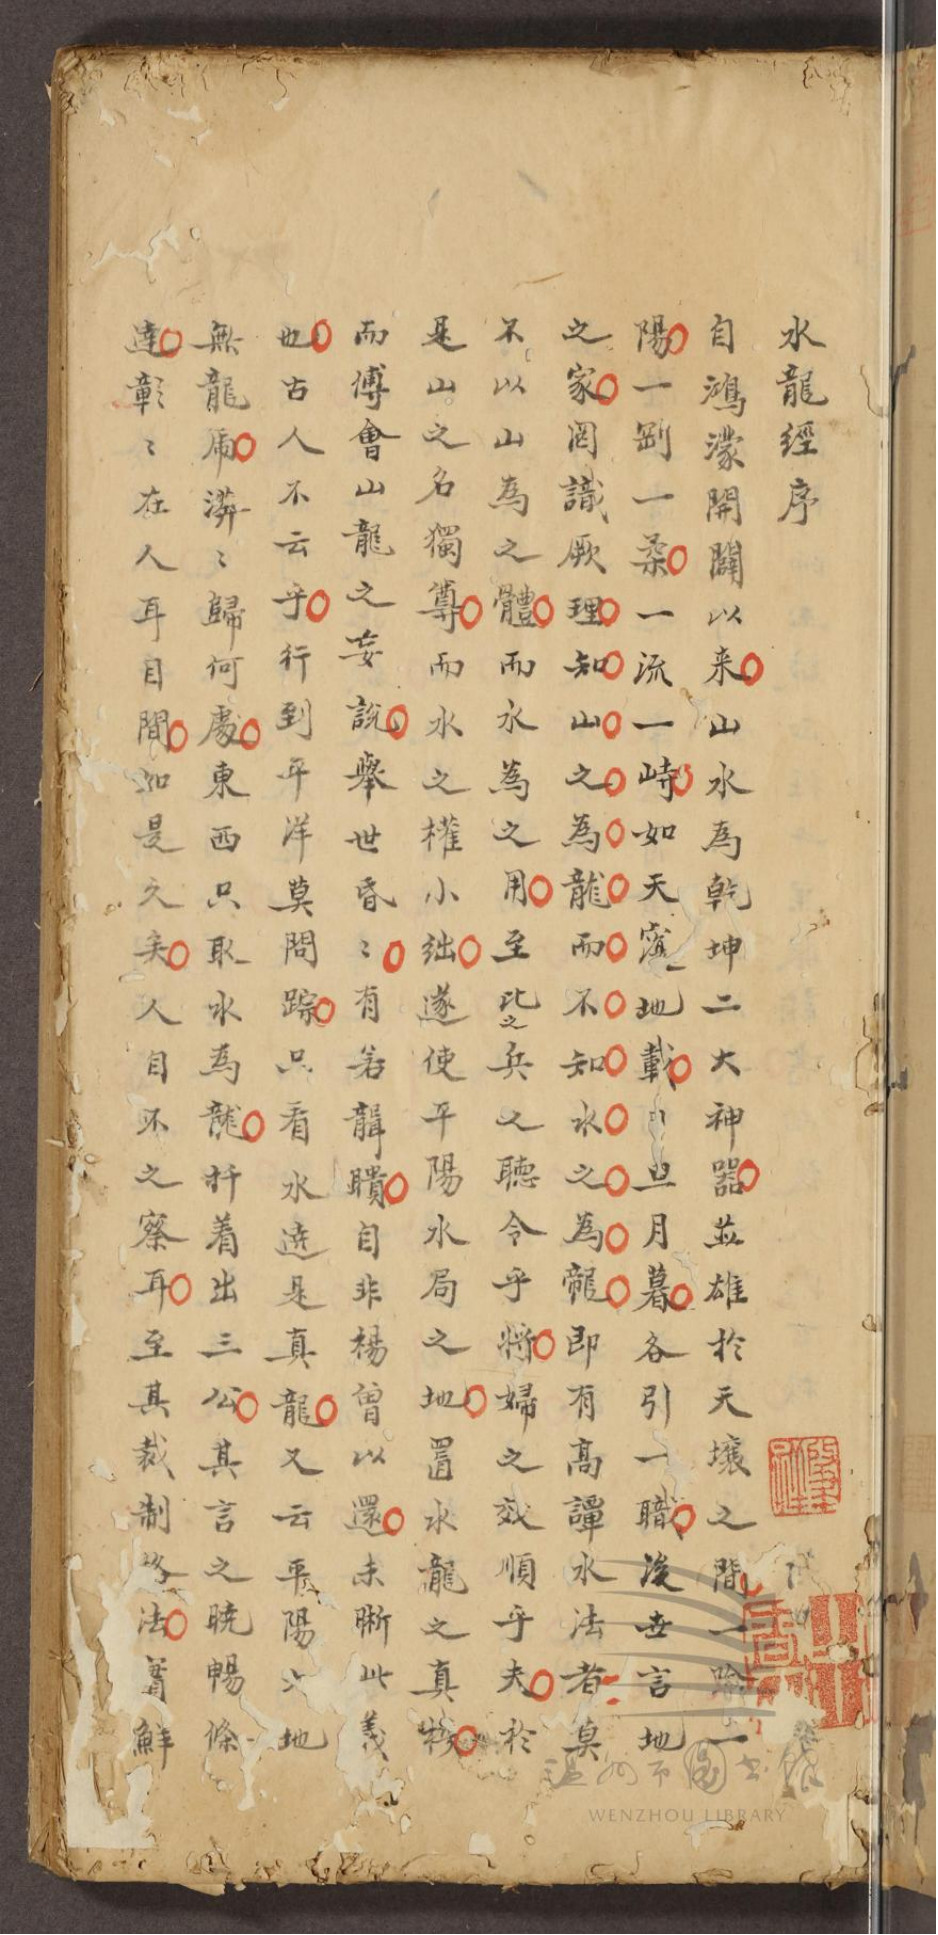 水龍經序
自鴻濛開闢以来山水為乾坤二大神器並雄於天壤之間一陰一
陽一剛一柔一流一峙如天𥨊地載日月暮各引一職後世言地
之家罔識厥理知山之為龍而不知水之為龍即有高譚水法者莫
不以山為之體而水為之用至比之兵之聽令乎將婦之效順乎夫於
是山之名獨尊而水之權小絀遂使平陽水局之地置水龍之真機
而傅會山龍之妄說舉世昏〻有若聾瞶自非楊曾以還未晰此義
也古人不云乎行到平洋莫問踪只看水遶是真龍又云平陽大地
無龍虎漭〻歸何處東西只取水為龍扦着出三公其言之曉暢條
達彰〻在人耳目間如是之矣人自不之察耳至其裁制格法蓋鮮
WENZHOU LIBRARY